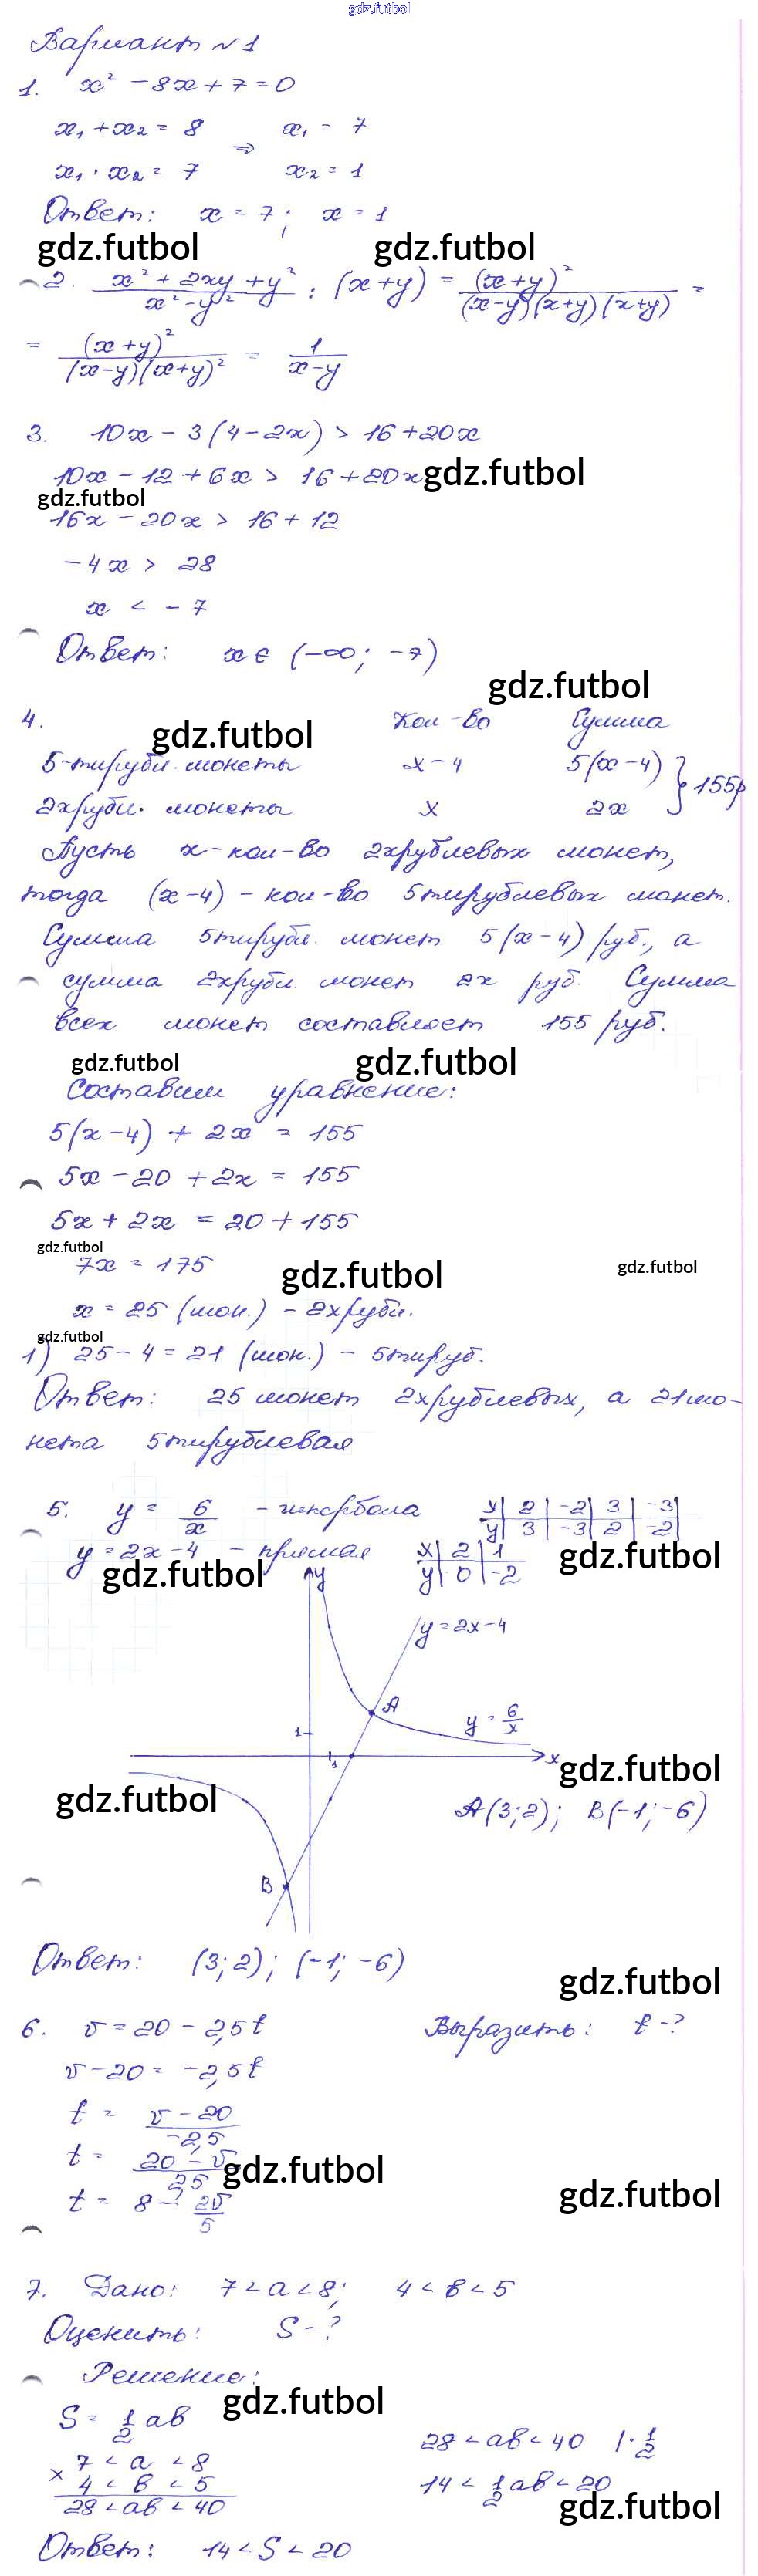 gdz.futbol
Вариант №1
1. x² - 8x + 7 = 0
x₁ + x₂ = 8 ⇒ x₁ = 7
x₁ · x₂ = 7 x₂ = 1
Ответ: x = 7; x = 1
gdz.futbol gdz.futbol
2. (x² + 2xy + y²)/(x² - y²) : (x+y) = (x+y)²/((x-y)(x+y)(x+y)) =
= (x+y)²/((x-y)(x+y)²) = 1/(x-y)
3. 10x - 3(4-2x) > 16 + 20x
10x - 12 + 6x > 16 + 20x gdz.futbol
gdz.futbol
16x - 20x > 16 + 12
-4x > 28
x < -7
Ответ: x ∈ (-∞; -7)
gdz.futbol
4. Кол-во Сумма
gdz.futbol
5-тирубл. монеты x-4 5(x-4) } 155р
2хрубл. монеты x 2x
Пусть x - кол-во 2хрублевых монет,
тогда (x-4) - кол-во 5тирублевых монет.
Сумма 5тирубл. монет 5(x-4) руб., а
сумма 2хрубл. монет 2x руб. Сумма
всех монет составляет 155 руб.
gdz.futbol gdz.futbol
Составим уравнение:
5(x-4) + 2x = 155
5x - 20 + 2x = 155
5x + 2x = 20 + 155
gdz.futbol
7x = 175 gdz.futbol gdz.futbol
x = 25 (мон.) - 2хрубл.
gdz.futbol
1) 25 - 4 = 21 (мон.) - 5тируб.
Ответ: 25 монет 2хрублевых, а 21 мо-
нета 5тирублевая
5. y = 6/x - гипербола x | 2 | -2 | 3 | -3
y | 3 | -3 | 2 | -2
y = 2x - 4 - прямая x | 2 | 1 gdz.futbol
gdz.futbol y | 0 | -2
y
y = 2x - 4
A
y = 6/x
1
1
x
gdz.futbol
gdz.futbol
A(3; 2); B(-1; -6)
B
Ответ: (3; 2); (-1; -6)
gdz.futbol
6. v = 20 - 2,5t Выразить: t - ?
v - 20 = -2,5t
t = (v - 20)/(-2,5)
t = (20 - v)/2,5 gdz.futbol
t = 8 - 2v/5 gdz.futbol
7. Дано: 7 < a < 8; 4 < b < 5
Оценить: S - ?
Решение:
gdz.futbol
S = 1/2 ab
28 < ab < 40 | · 1/2
× 7 < a < 8
4 < b < 5 14 < 1/2 ab < 20
28 < ab < 40 gdz.futbol
Ответ: 14 < S < 20